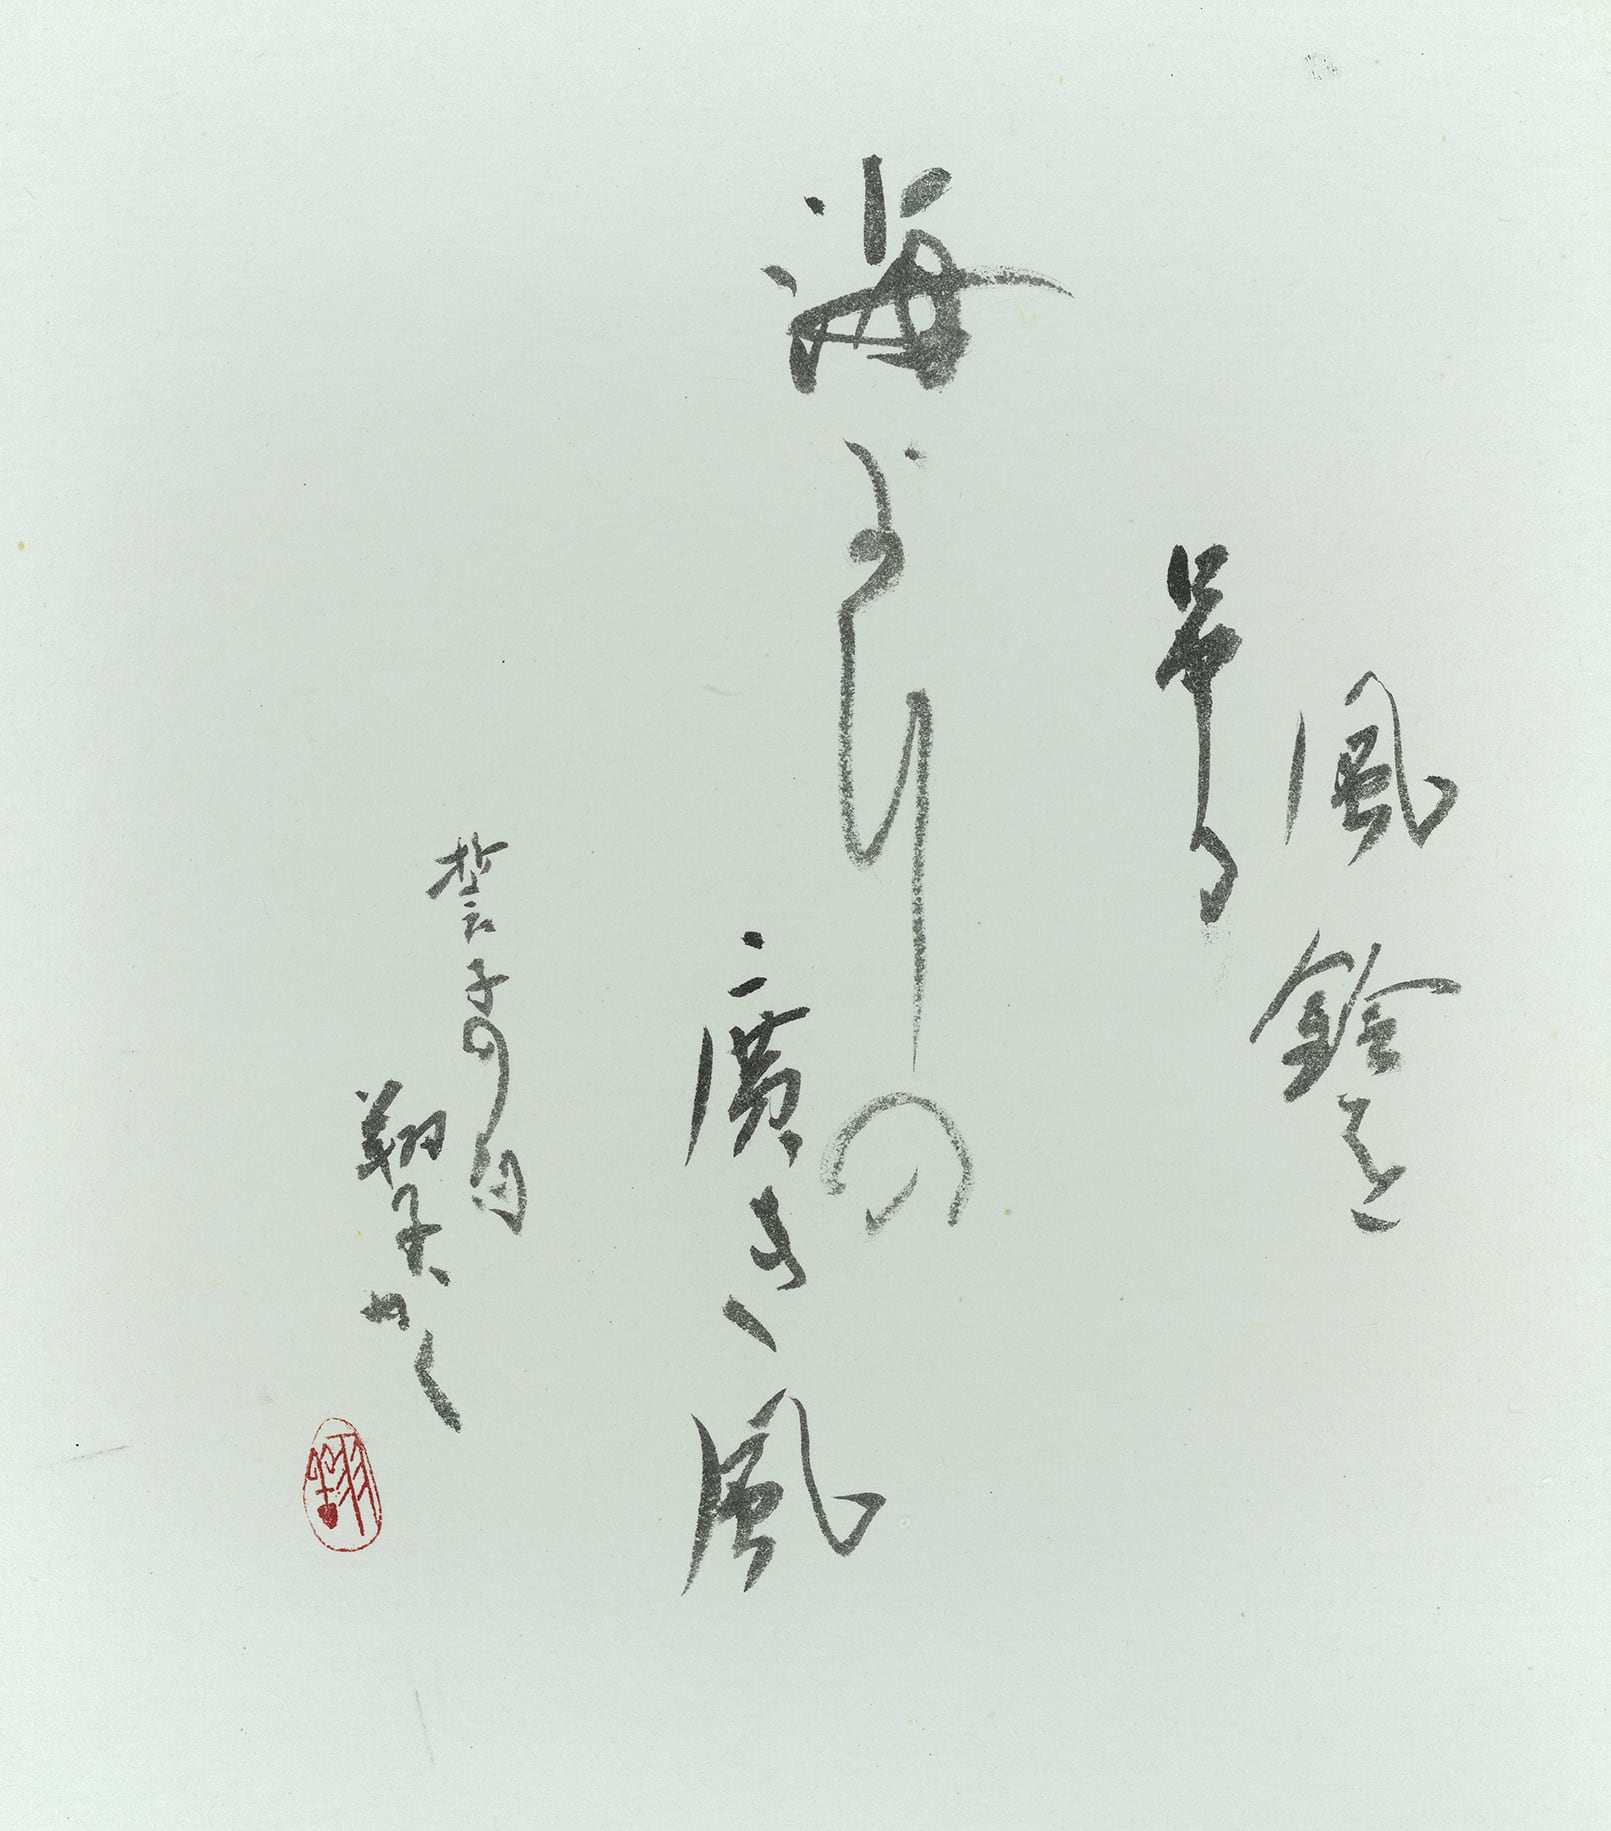 風鈴を
吊る
海よりの
廣き風
誓子の句
翔子かく
翔